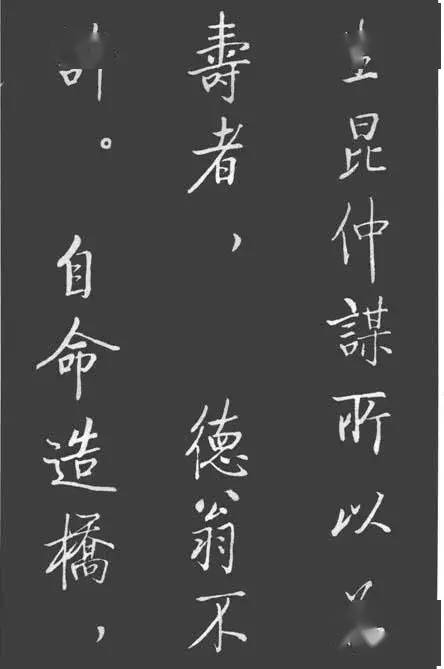 昆仲謀所以
壽者，德翁不
。自命造橋，